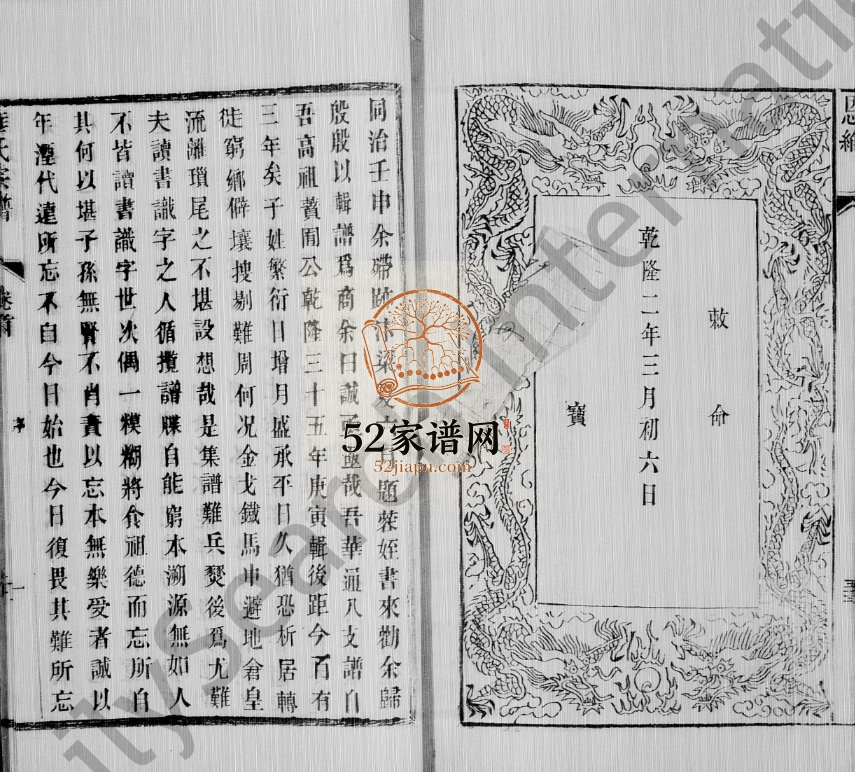 恩綸
敕命
乾隆二年三月初六日
寶
同治壬申余 題蓉姪書來勸余歸
殷殷以輯譜爲商余曰誠 哉吾華通八支譜自
吾高祖蒼閬公乾隆三十五年庚寅輯後距今百有
三年矣子姓繁衍日增月盛承平日久猶恐析居轉
徙窮鄉僻壤搜剔難周何况金戈鐵馬中避地倉皇
流離瑣尾之不堪設想哉是集譜難兵燹後爲尤難
夫讀書識字之人循攬譜牒自能窮本溯源無如人
不皆讀書識字世次偶一模糊將食祖德而忘所自
其何以堪子孫無賢不肖責以忘本無樂受者誠以
年湮代遠所忘不自今日始也今日復畏其難所忘
氏宗譜
卷首
序
52家谱网
52jiapu.com
ilySearch International